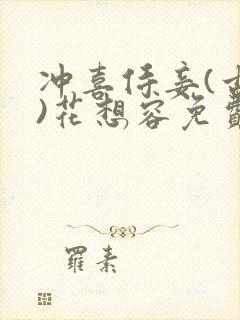 冲喜侍妾(古
)花想容免費
羅素